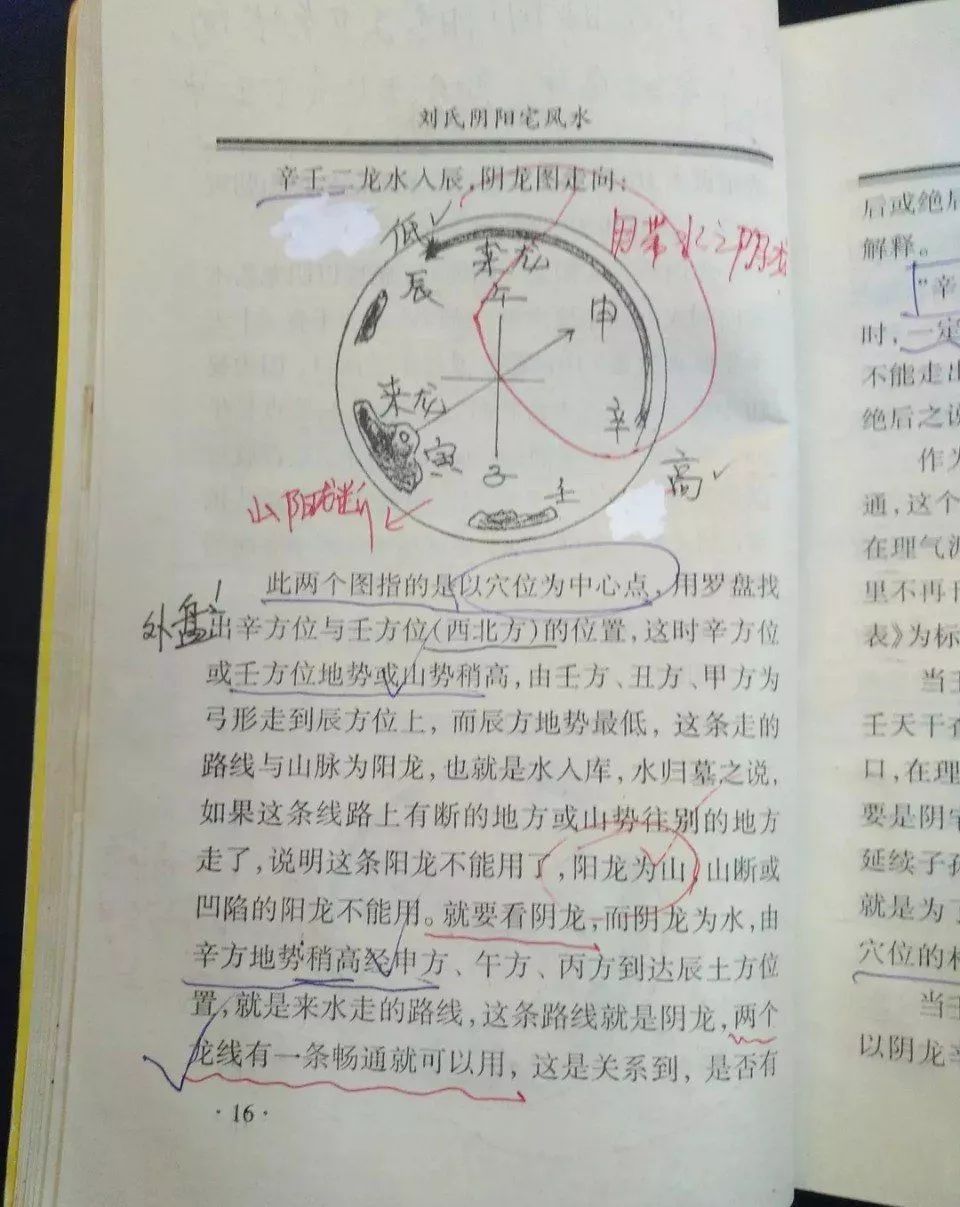 刘氏阴阳宅风水
辛壬二龙水入辰，阴龙图走向：
低
来龙
午
辰
申
来龙
寅
辛
子
壬
高
山阳龙断
此两个图指的是以穴位为中心点，用罗盘找
外盘！
出辛方位与壬方位(西北方)的位置，这时辛方位
或壬方位地势或山势稍高，由壬方、丑方、甲方为
弓形走到辰方位上，而辰方地势最低，这条走的
路线与山脉为阳龙，也就是水入库，水归墓之说，
如果这条线路上有断的地方或山势往别的地方
走了，说明这条阳龙不能用了，阳龙为山，山断或
凹陷的阳龙不能用。就要看阴龙，而阴龙为水，由
辛方地势稍高经申方、午方、丙方到达辰土方位
置，就是来水走的路线，这条路线就是阴龙，两个
龙线有一条畅通就可以用，这是关系到，是否有
·16·
后或绝后
解释。
"辛
时，一定
不能走出
绝后之说
作为
通，这个
在理气派
里不再
表》为标
当壬
壬天干在
口，在理
要是阴宅
延续子孙
就是为了
穴位的
当壬
以阴龙辛